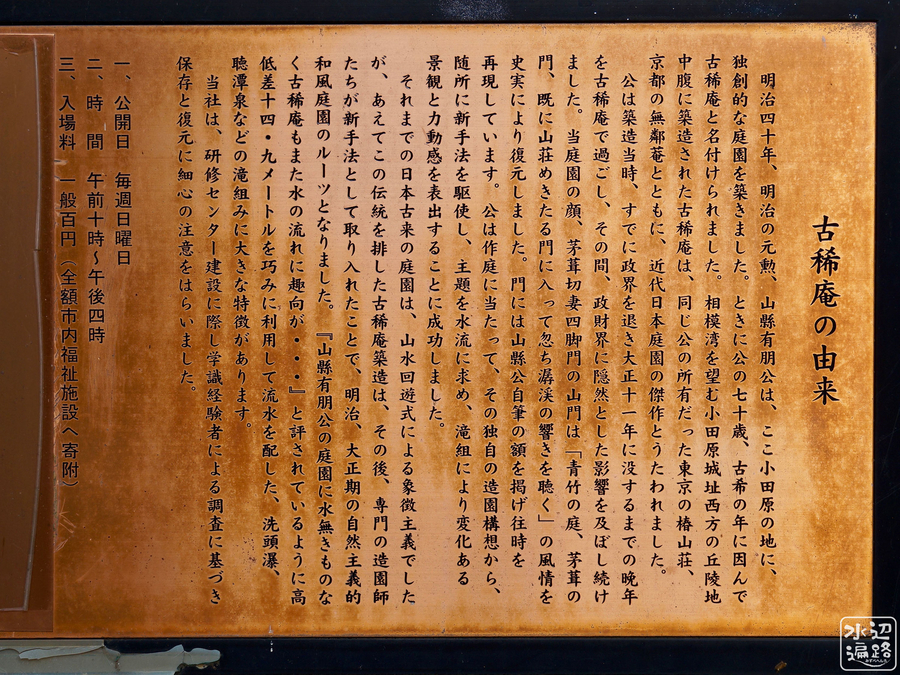 古稀庵の由来
明治四十年、明治の元勲、山縣有朋公は、ここ小田原の地に、
独創的な庭園を築きました。ときに公の七十歳、古希の年に因んで
古稀庵と名付けられました。相模湾を望む小田原城址西方の丘陵地
中腹に築造された古稀庵は、同じ公の所有だった東京の椿山荘、
京都の無鄰菴とともに、近代日本庭園の傑作とうたわれました。
公は築造当時、すでに政界を退き大正十一年に没するまでの晩年
を古稀庵で過ごし、その間、政財界に隠然とした影響を及ぼし続け
ました。当庭園の顔、茅葺切妻四脚門の山門は「青竹の庭、茅葺の
門、既に山荘めきたる門に入って忽ち潺渓の響きを聴く」の風情を
史実により復元しました。門には山縣公自筆の額を掲げ往時を
再現しています。公は作庭に当たって、その独自の造園構想から、
随所に新手法を駆使し、主題を水流に求め、滝組により変化ある
景観と力動感を表出することに成功しました。
それまでの日本古来の庭園は、山水回遊式による象徴主義でした
が、あえてこの伝統を排した古稀庵築造は、その後、専門の造園師
たちが新手法として取り入れたことで、明治、大正期の自然主義的
和風庭園のルーツとなりました。『山縣有朋公の庭園に水無きものな
く古稀庵もまた水の流れに趣向が・・・』と評されているように高
低差十四・九メートルを巧みに利用して流水を配した、洗頭瀑、
聴潭泉などの滝組みに大きな特徴があります。
当社は、研修センター建設に際し学識経験者による調査に基づき
保存と復元に細心の注意をはらいました。
一、公開日 毎週日曜日
二、時 間 午前十時〜午後四時
三、入場料 一般百円（全額市内福祉施設へ寄附）
水辺遍路